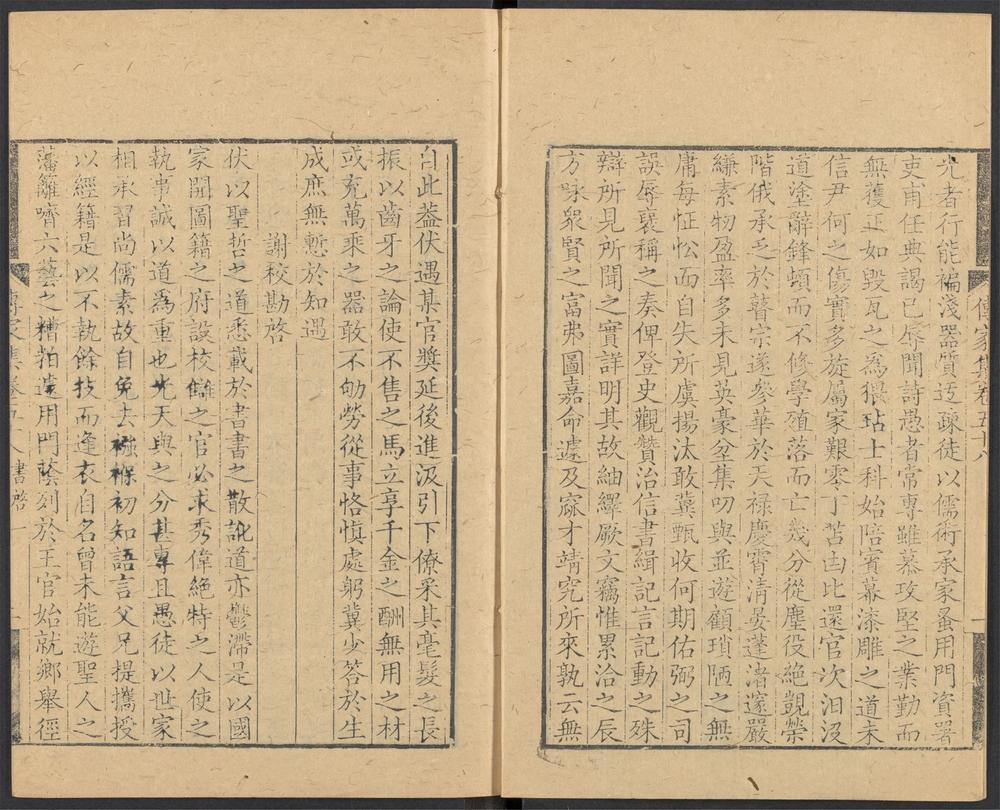 傳家集卷五十八
一
光者行能褊淺器質迃疎徒以儒術承家蚤用門資署
吏甫任典謁已辱聞詩愚者常專雖慕攻堅之業勤而
無獲正如毀瓦之爲猥玷士科始陪賓幕漆雕之道未
信尹何之傷實多旋屬家艱零丁苦凷比還官次汨沒
道塗辭鋒頓而不修學殖落而亡幾分從塵役絶覬榮
階俄承乏於瞽宗遂參華於天禄慶霄清晏蓬渚邃嚴
縑素物盈率多未見英豪坌集叨與並遊顧瑣陋之無
庸每怔忪而自失所虞揚汰敢冀甄收何期佑弼之司
誤辱裦稱之奏俾登史觀贊治信書緝記言記動之殊
辯所見所聞之實詳明其故紬繹厥文竊惟累洽之辰
方咏衆賢之富弗圖嘉命遽及窳才靖究所來孰云無
自此葢伏遇某官奬延後進汲引下僚采其毫髮之長
振以齒牙之論使不售之馬立享千金之酬無用之材
或充萬乘之器敢不劬勞從事恪愼處躬冀少答於生
成庶無慙於知遇
謝校勘啓
伏以聖哲之道悉載於書書之散訛道亦鬱滯是以國
家開圖籍之府設校讎之官必求秀偉絶特之人使之
執事誠以道爲重也光天與之分甚專且愚徒以世家
相承習尚儒素故自免去襁褓初知語言父兄提攜授
以經籍是以不執餘技而逢衣自名曾未能遊聖人之
藩籬嚌六藝之糟粕遽用門蔭列於王官始就鄉舉徑
傳家集卷五十八 書啓一
一